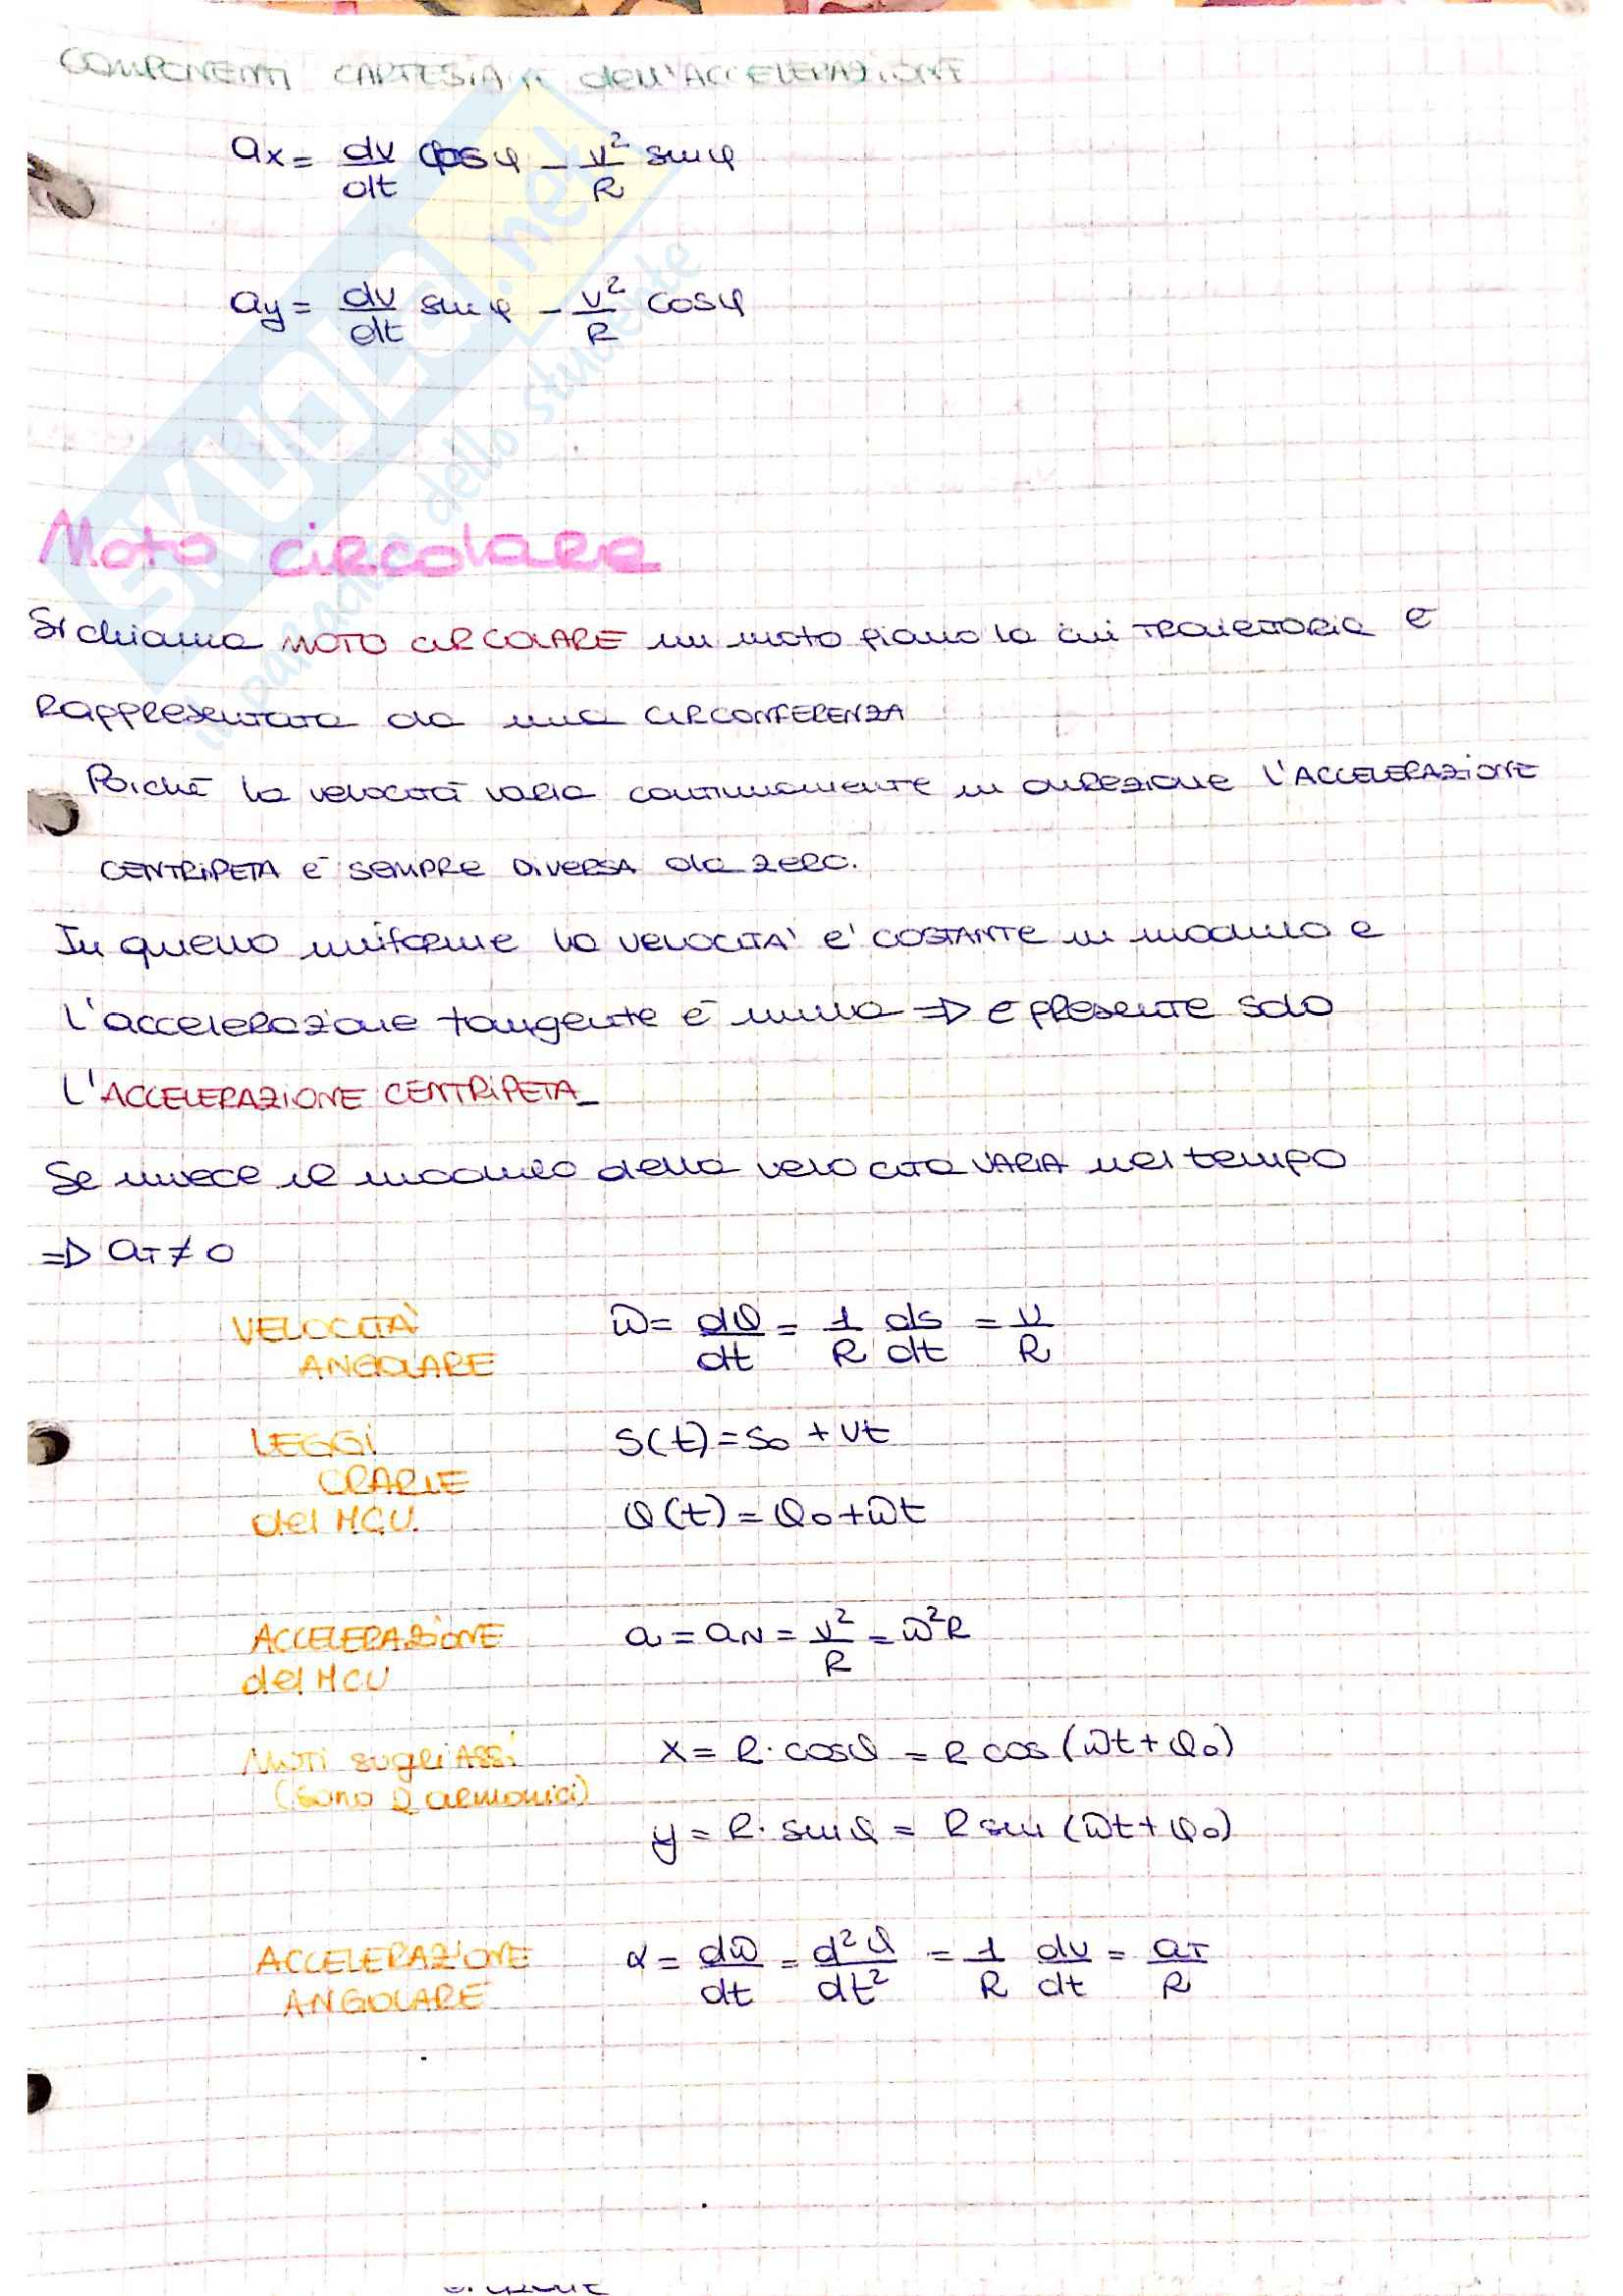 COMPONENTI CARTESIANE dell'ACCELERAZIONE
ax = dv/dt cosφ - v²/R sinφ
ay = dv/dt sinφ - v²/R cosφ
SKUOLA.net
il paradiso dello studente
Moto circolare
Si chiama MOTO CIRCOLARE un moto piano la cui TRAIETTORIA è
Rappresentata da una CIRCONFERENZA
Poiché la velocità varia continuamente in direzione l'ACCELERAZIONE
CENTRIPETA è SEMPRE DIVERSA da zero.
In quello uniforme la VELOCITA' e' COSTANTE in modulo e
l'accelerazione tangente è nulla => è presente solo
l'ACCELERAZIONE CENTRIPETA
Se invece il modulo della velocità VARIA nel tempo
=> aT ≠ 0
VELOCITÀ ANGOLARE ω = dθ/dt = 1/R ds/dt = v/R
LEGGI ORARIE del M.C.U. s(t) = s0 + vt
θ(t) = θ0 + ωt
ACCELERAZIONE del MCU a = aN = v²/R = ω²R
Moti sugli ASSi (sono 2 armonici) x = R · cosθ = R cos (ωt + θ0)
y = R · sinθ = R sin (ωt + θ0)
ACCELERAZIONE ANGOLARE α = dω/dt = d²θ/dt² = 1/R dv/dt = aT/R